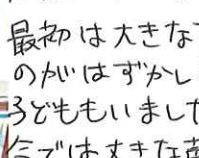 最初は大きな
のがはずかし
子どももいました
今では大きな